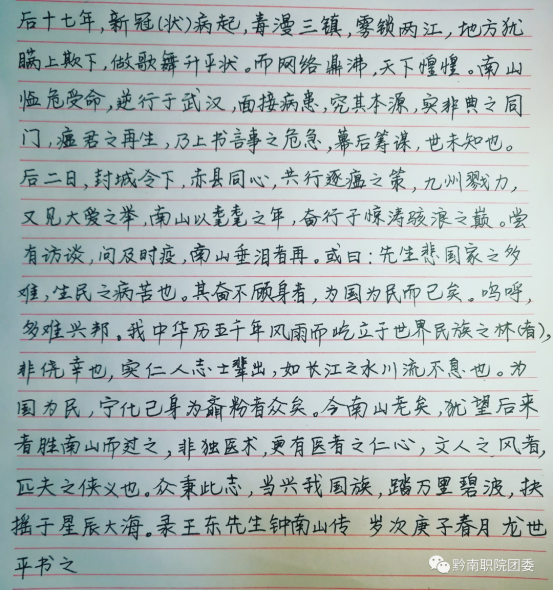 后十七年，新冠(状)病起，毒漫三镇，雾锁两江，地方犹
瞒上欺下，做歌舞升平状。而网络鼎沸，天下惶惶。南山
临危受命，逆行于武汉，面接病患，究其本源，实非典之同
门，瘟君之再生，乃上书言事之危急，幕后筹谋，世未知也。
后二日，封城令下，赤县同心，共行逐瘟之策，九州戮力，
又见大爱之举，南山以耄耋之年，奋行于惊涛骇浪之巅。尝
有访谈，问及时疫，南山垂泪者再。或曰：先生悲国家之多
难，生民之病苦也。其奋不顾身者，为国为民而已矣。呜呼，
多难兴邦。我中华历五千年风雨而屹立于世界民族之林(者)，
非侥幸也，实仁人志士辈出，如长江之水川流不息也。为
国为民，宁化己身为齑粉者众矣。今南山老矣，犹望后来
者胜南山而过之，非独医术，更有医者之仁心，文人之风者，
匹夫之侠义也。众秉此志，当兴我国族，踏万里碧波，扶
摇于星辰大海。录王东先生钟南山传 岁次庚子春月 龙世
平书之
黔南职院团委